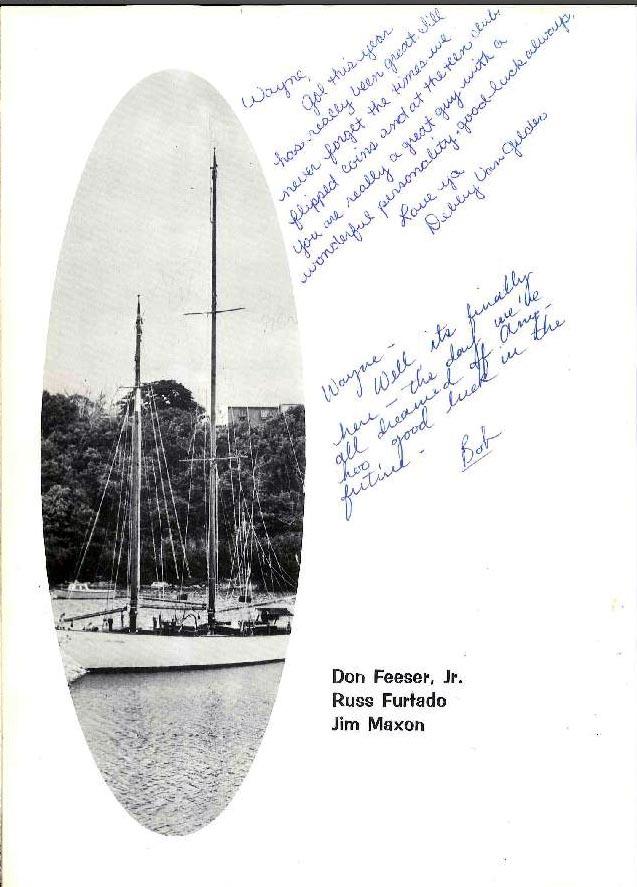 Wayne,
Gol this year
has really been great. I'll
never forget the times we
flipped coins and at the teen club.
You are really a great guy with a
wonderful personality. good luck always.
Love ya
Debby Van Gilder
Wayne -
Well its finally
here - the day we've
all dreamed of. Any-
hoo good luck in the
future -
Bob
Don Feeser, Jr.
Russ Furtado
Jim Maxon